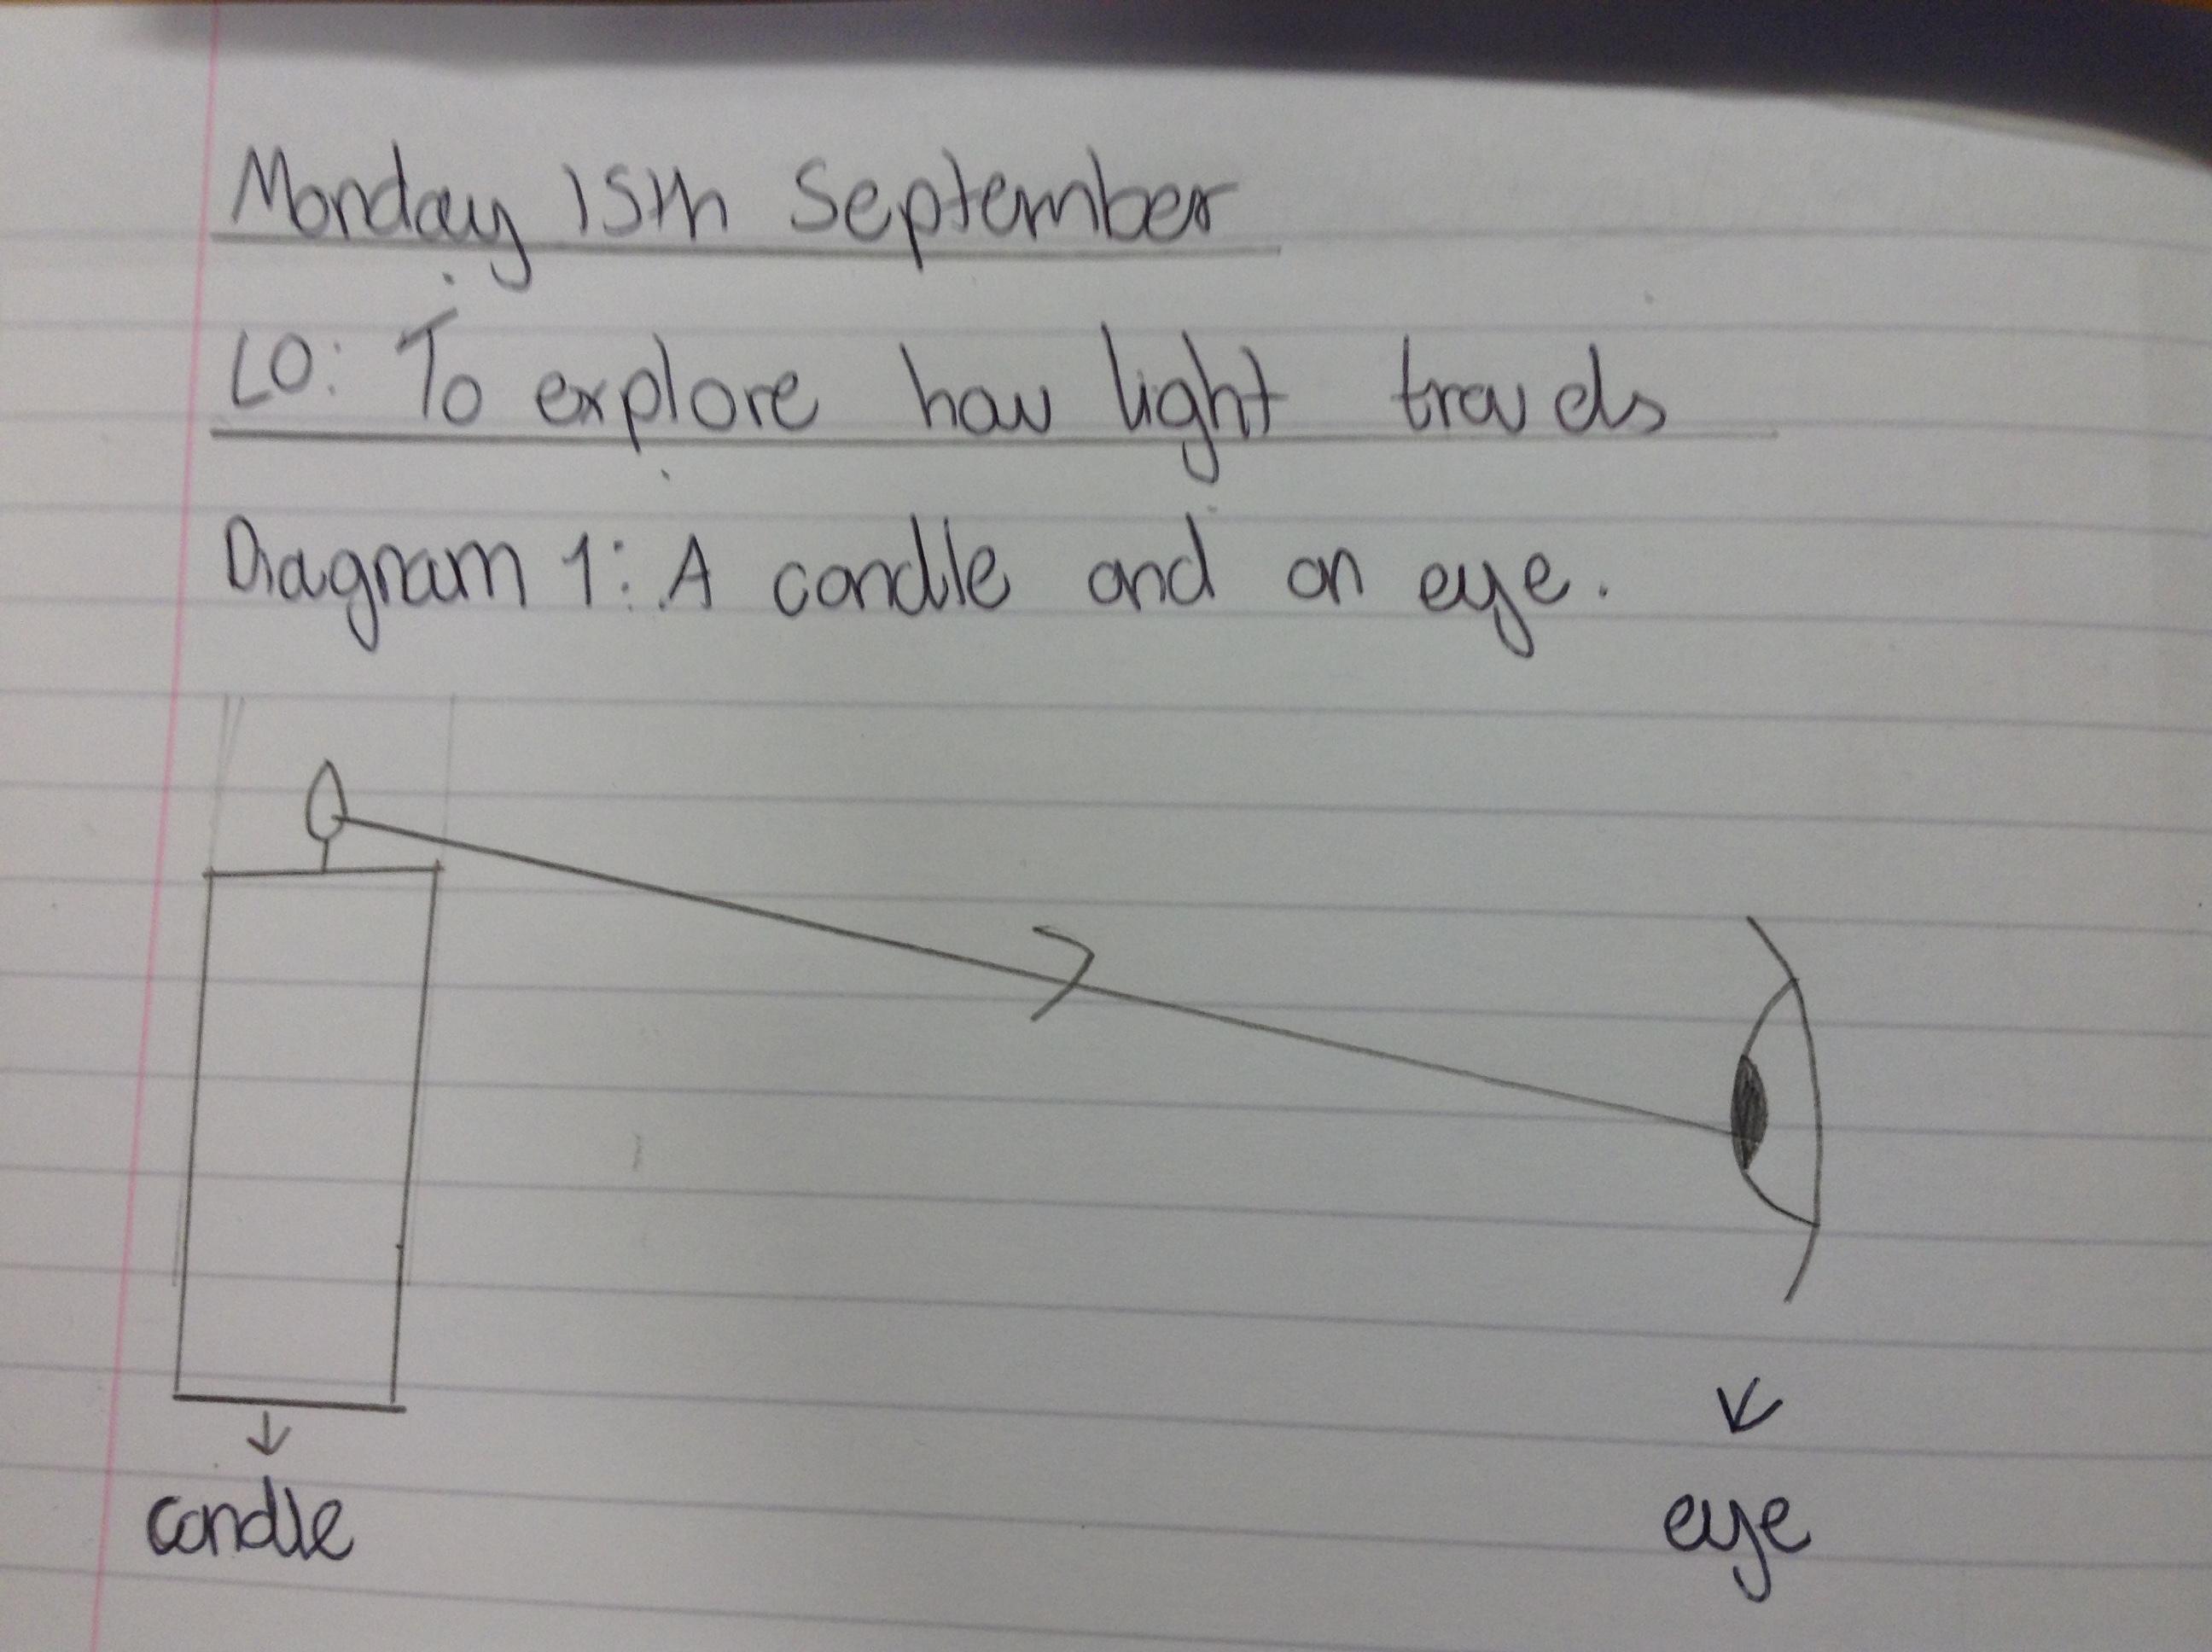 Monday 15th September
LO: To explore how light travels
Diagram 1: A candle and an eye.
candle
eye